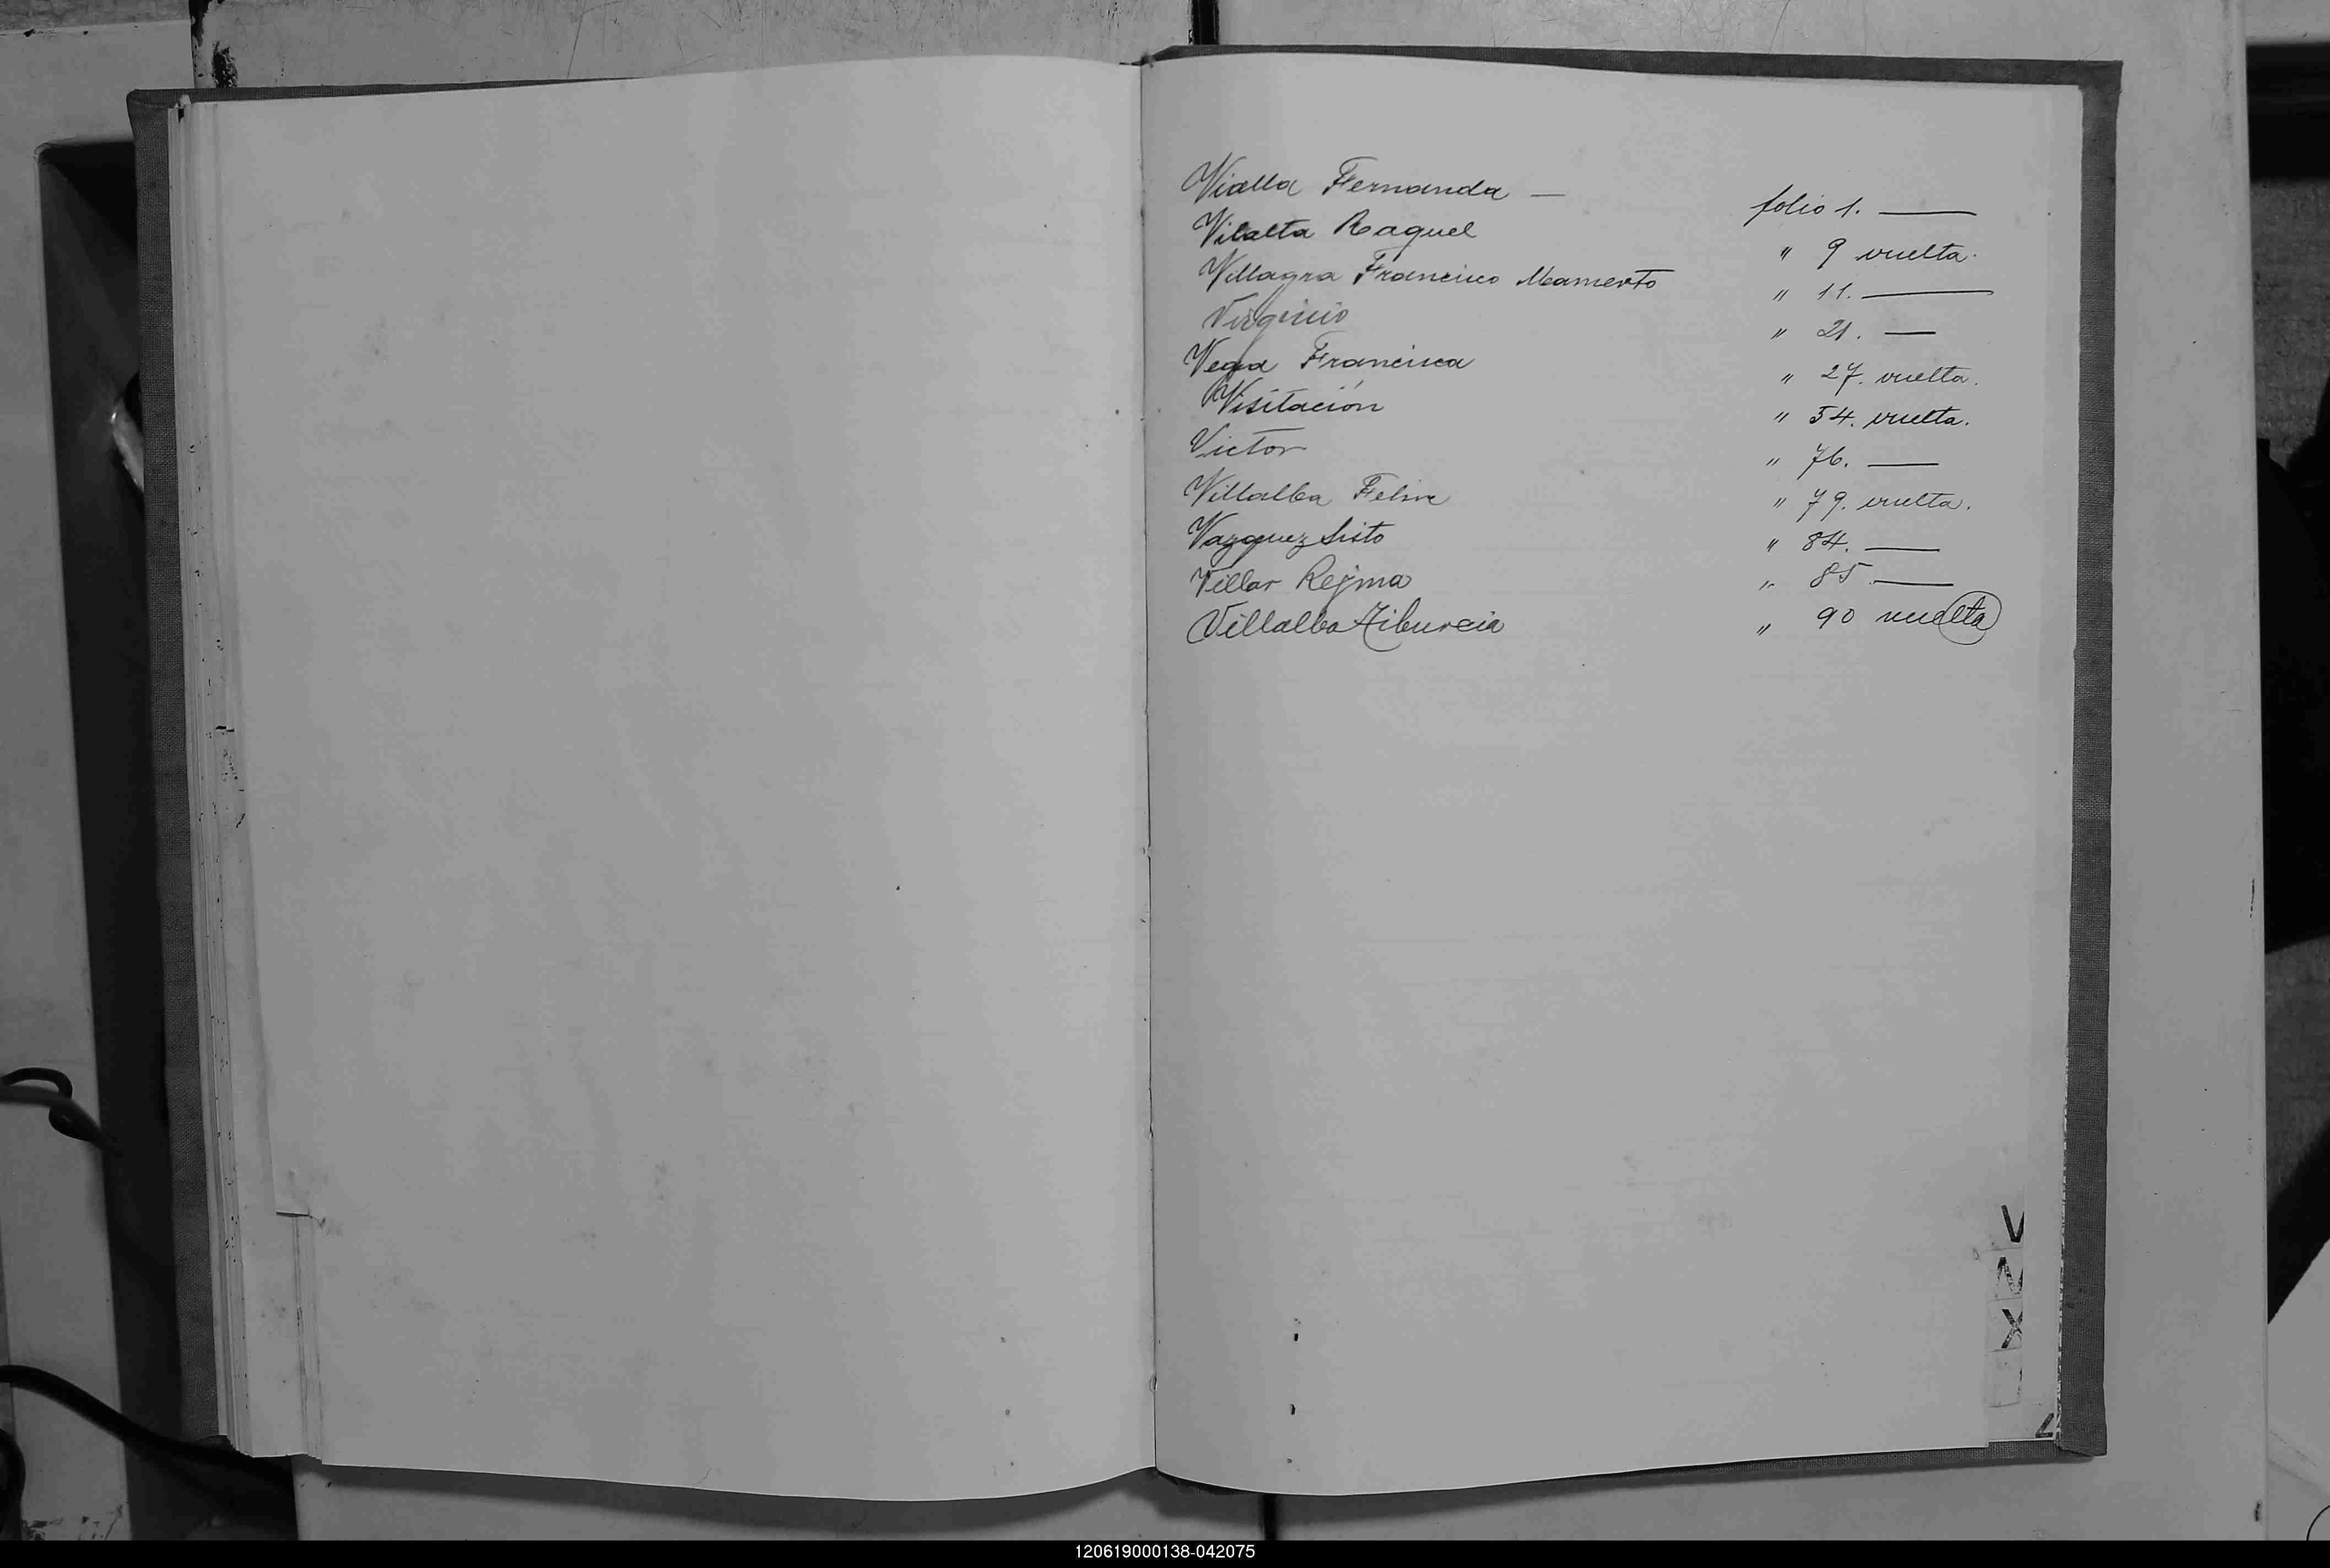 Vialla Fernanda — folio 1. —
Vilalta Raquel " 9 vuelta.
Villagra Francisco Mamerto " 11. —
Virginio " 21. —
Vega Francisca " 27. vuelta.
Visitación " 54. vuelta.
Victor " 76. —
Villalba Felisa " 79. vuelta.
Vazquez Sisto " 84. —
Villar Rejina " 85. —
Villalba Tiburcia " 90 vuelta
V
X
Z
120619000138-042075